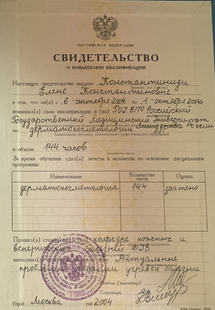 РОССИЙСКАЯ ФЕДЕРАЦИЯ
СВИДЕТЕЛЬСТВО
О ПОВЫШЕНИИ КВАЛИФИКАЦИИ
Настоящее свидетельство выдано Константиниди
Елене Константиновне
в том, что он(а) с 6 сентября по 1 октября 2004
повысил(а) свою квалификацию в ГОУ ВПО Российский
Государственный Медицинский Университет
дерматокосметологии Минздрава России
в объеме
144 часов
За время обучения сдал(а) зачеты и экзамены по основным дисциплинам
программы:
Наименование
Количество часов
Оценка
дерматокосметология
144
зачтено
Прошел(а) стажировку кафедре кожных и
венерических болезней ФУВ
Актуальные
проблемы
Город Москва
2004